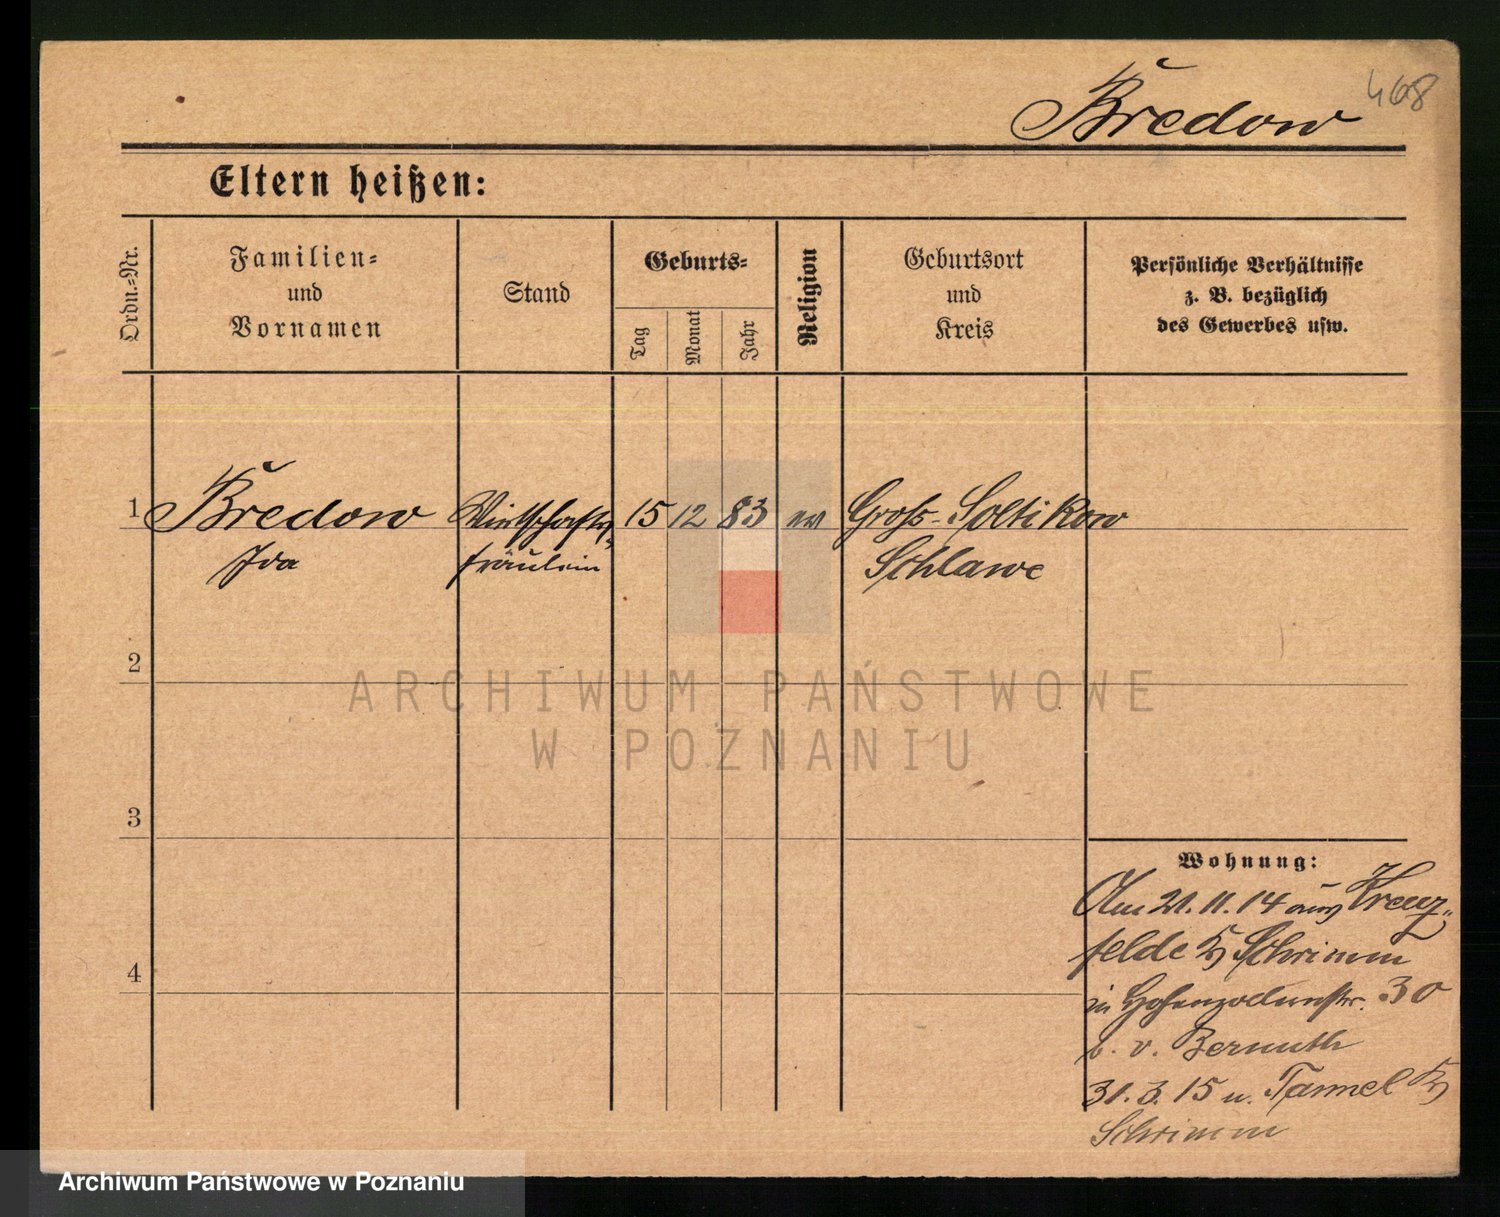 Bredow
468
Eltern heißen:
Ordn.-Nr.
Familien- und Vornamen
Stand
Geburts-
Tag
Monat
Jahr
Religion
Geburtsort und Kreis
Persönliche Verhältnisse
z. B. bezüglich
des Gewerbes usw.
1 Bredow Wirtschafts- 15 12 83 ev Gross-Soltikow
Ida fräulein Schlawe
2
3
4
ARCHIWUM PAŃSTWOWE
W POZNANIU
Wohnung:
Am 21.11.14 aus Kreuz-
felde Kr Schrimm
in Hohenzollernstr. 30
b. v. Bernuth
31.3.15 n. Tarmel Kr
Schrimm
Archiwum Państwowe w Poznaniu